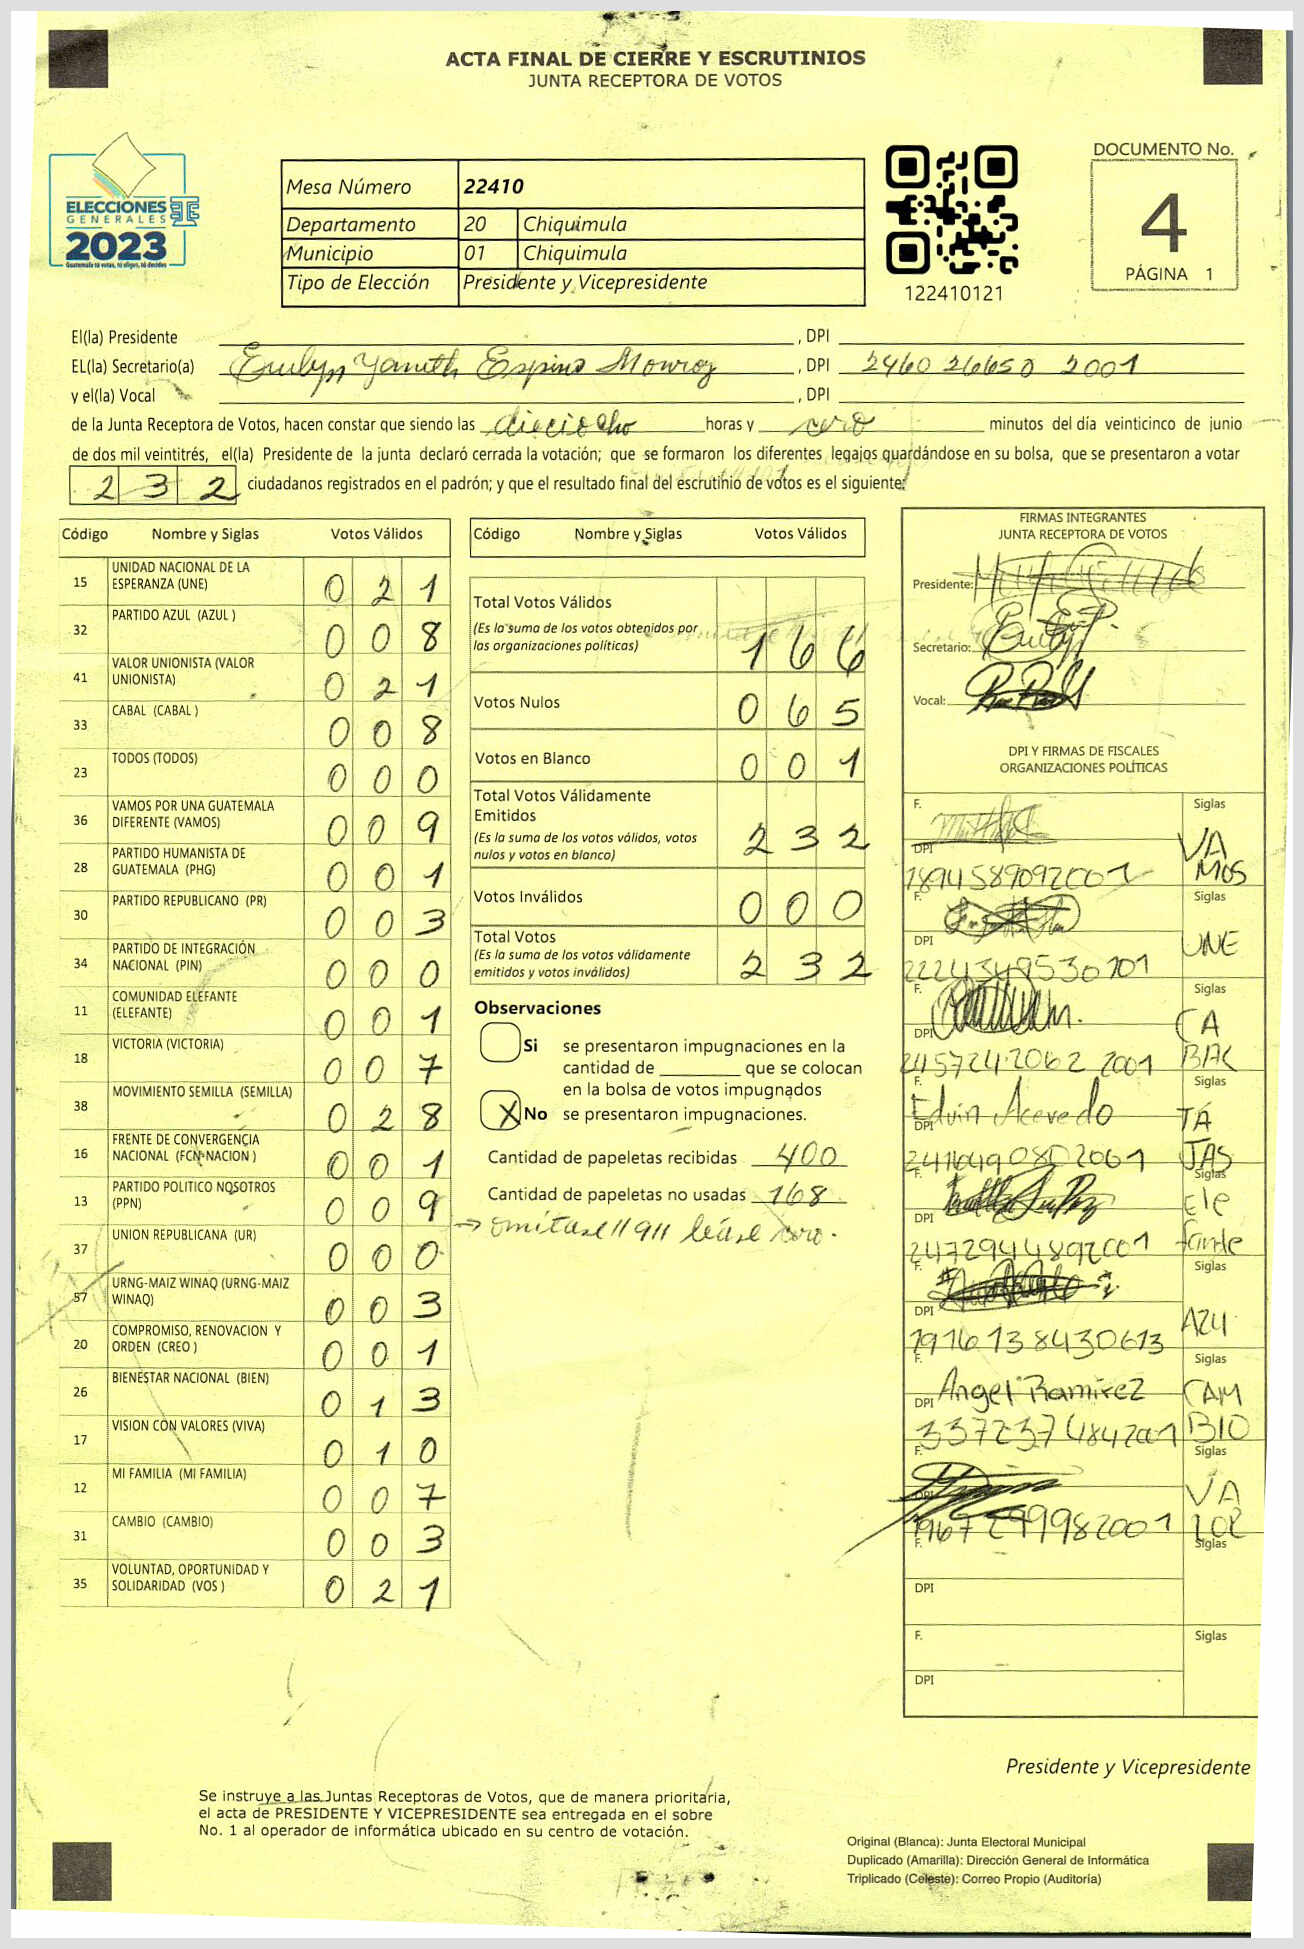 ACTA FINAL DE CIERRE Y ESCRUTINIOS
JUNTA RECEPTORA DE VOTOS
ELECCIONES
GENERALES
2023
Guatemala tú votas, tú eliges, tú decides
Mesa Número 22410
Departamento 20 Chiquimula
Municipio 01 Chiquimula
Tipo de Elección Presidente y Vicepresidente
122410121
DOCUMENTO No.
4
PÁGINA 1
El(la) Presidente , DPI
EL(la) Secretario(a) Evelyn Yaneth Espino Monroy , DPI 2460 26650 2001
y el(la) Vocal , DPI
de la Junta Receptora de Votos, hacen constar que siendo las dieciocho horas y cero minutos del día veinticinco de junio
de dos mil veintitrés, el(la) Presidente de la junta declaró cerrada la votación; que se formaron los diferentes legajos guardándose en su bolsa, que se presentaron a votar
232 ciudadanos registrados en el padrón; y que el resultado final del escrutinio de votos es el siguiente:
Código Nombre y Siglas Votos Válidos
15 UNIDAD NACIONAL DE LA ESPERANZA (UNE) 021
32 PARTIDO AZUL (AZUL ) 008
41 VALOR UNIONISTA (VALOR UNIONISTA) 021
33 CABAL (CABAL ) 008
23 TODOS (TODOS) 000
36 VAMOS POR UNA GUATEMALA DIFERENTE (VAMOS) 009
28 PARTIDO HUMANISTA DE GUATEMALA (PHG) 001
30 PARTIDO REPUBLICANO (PR) 003
34 PARTIDO DE INTEGRACIÓN NACIONAL (PIN) 000
11 COMUNIDAD ELEFANTE (ELEFANTE) 001
18 VICTORIA (VICTORIA) 007
38 MOVIMIENTO SEMILLA (SEMILLA) 028
16 FRENTE DE CONVERGENCIA NACIONAL (FCN-NACION ) 001
13 PARTIDO POLITICO NOSOTROS (PPN) 009
37 UNION REPUBLICANA (UR) 000
57 URNG-MAIZ WINAQ (URNG-MAIZ WINAQ) 003
20 COMPROMISO, RENOVACION Y ORDEN (CREO ) 001
26 BIENESTAR NACIONAL (BIEN) 013
17 VISION CON VALORES (VIVA) 010
12 MI FAMILIA (MI FAMILIA) 007
31 CAMBIO (CAMBIO) 003
35 VOLUNTAD, OPORTUNIDAD Y SOLIDARIDAD (VOS ) 021
Código Nombre y Siglas Votos Válidos
Total Votos Válidos
(Es la suma de los votos obtenidos por las organizaciones políticas) 166
Votos Nulos 065
Votos en Blanco 001
Total Votos Válidamente Emitidos
(Es la suma de los votos válidos, votos nulos y votos en blanco) 232
Votos Inválidos 000
Total Votos
(Es la suma de los votos válidamente emitidos y votos inválidos) 232
Observaciones
Si se presentaron impugnaciones en la
cantidad de ________ que se colocan
en la bolsa de votos impugnados
X No se presentaron impugnaciones.
Cantidad de papeletas recibidas 400
Cantidad de papeletas no usadas 168
→ omitase 11 911 léase cero.
FIRMAS INTEGRANTES
JUNTA RECEPTORA DE VOTOS
Presidente:
Secretario:
Vocal:
DPI Y FIRMAS DE FISCALES
ORGANIZACIONES POLÍTICAS
F. Siglas
DPI 1894589092001 VA MOS
F. Siglas
DPI 2224349530101 UNE
F. Siglas
DPI 2457242062 2001 CA BAL
F. Edvin Acevedo Siglas
DPI 2411649080 2061 TÁ JAS
F. Siglas
DPI 2472944892001 Ele fante
F. Siglas
DPI 1916138430613 AZU
F. Angel Ramirez Siglas
DPI 3372374842001 CAM BIO
F. Siglas
DPI 1967299982001 VA LOR
F. Siglas
DPI
F. Siglas
DPI
Presidente y Vicepresidente
Se instruye a las Juntas Receptoras de Votos, que de manera prioritaria,
el acta de PRESIDENTE Y VICEPRESIDENTE sea entregada en el sobre
No. 1 al operador de informática ubicado en su centro de votación.
Original (Blanca): Junta Electoral Municipal
Duplicado (Amarilla): Dirección General de Informática
Triplicado (Celeste): Correo Propio (Auditoría)